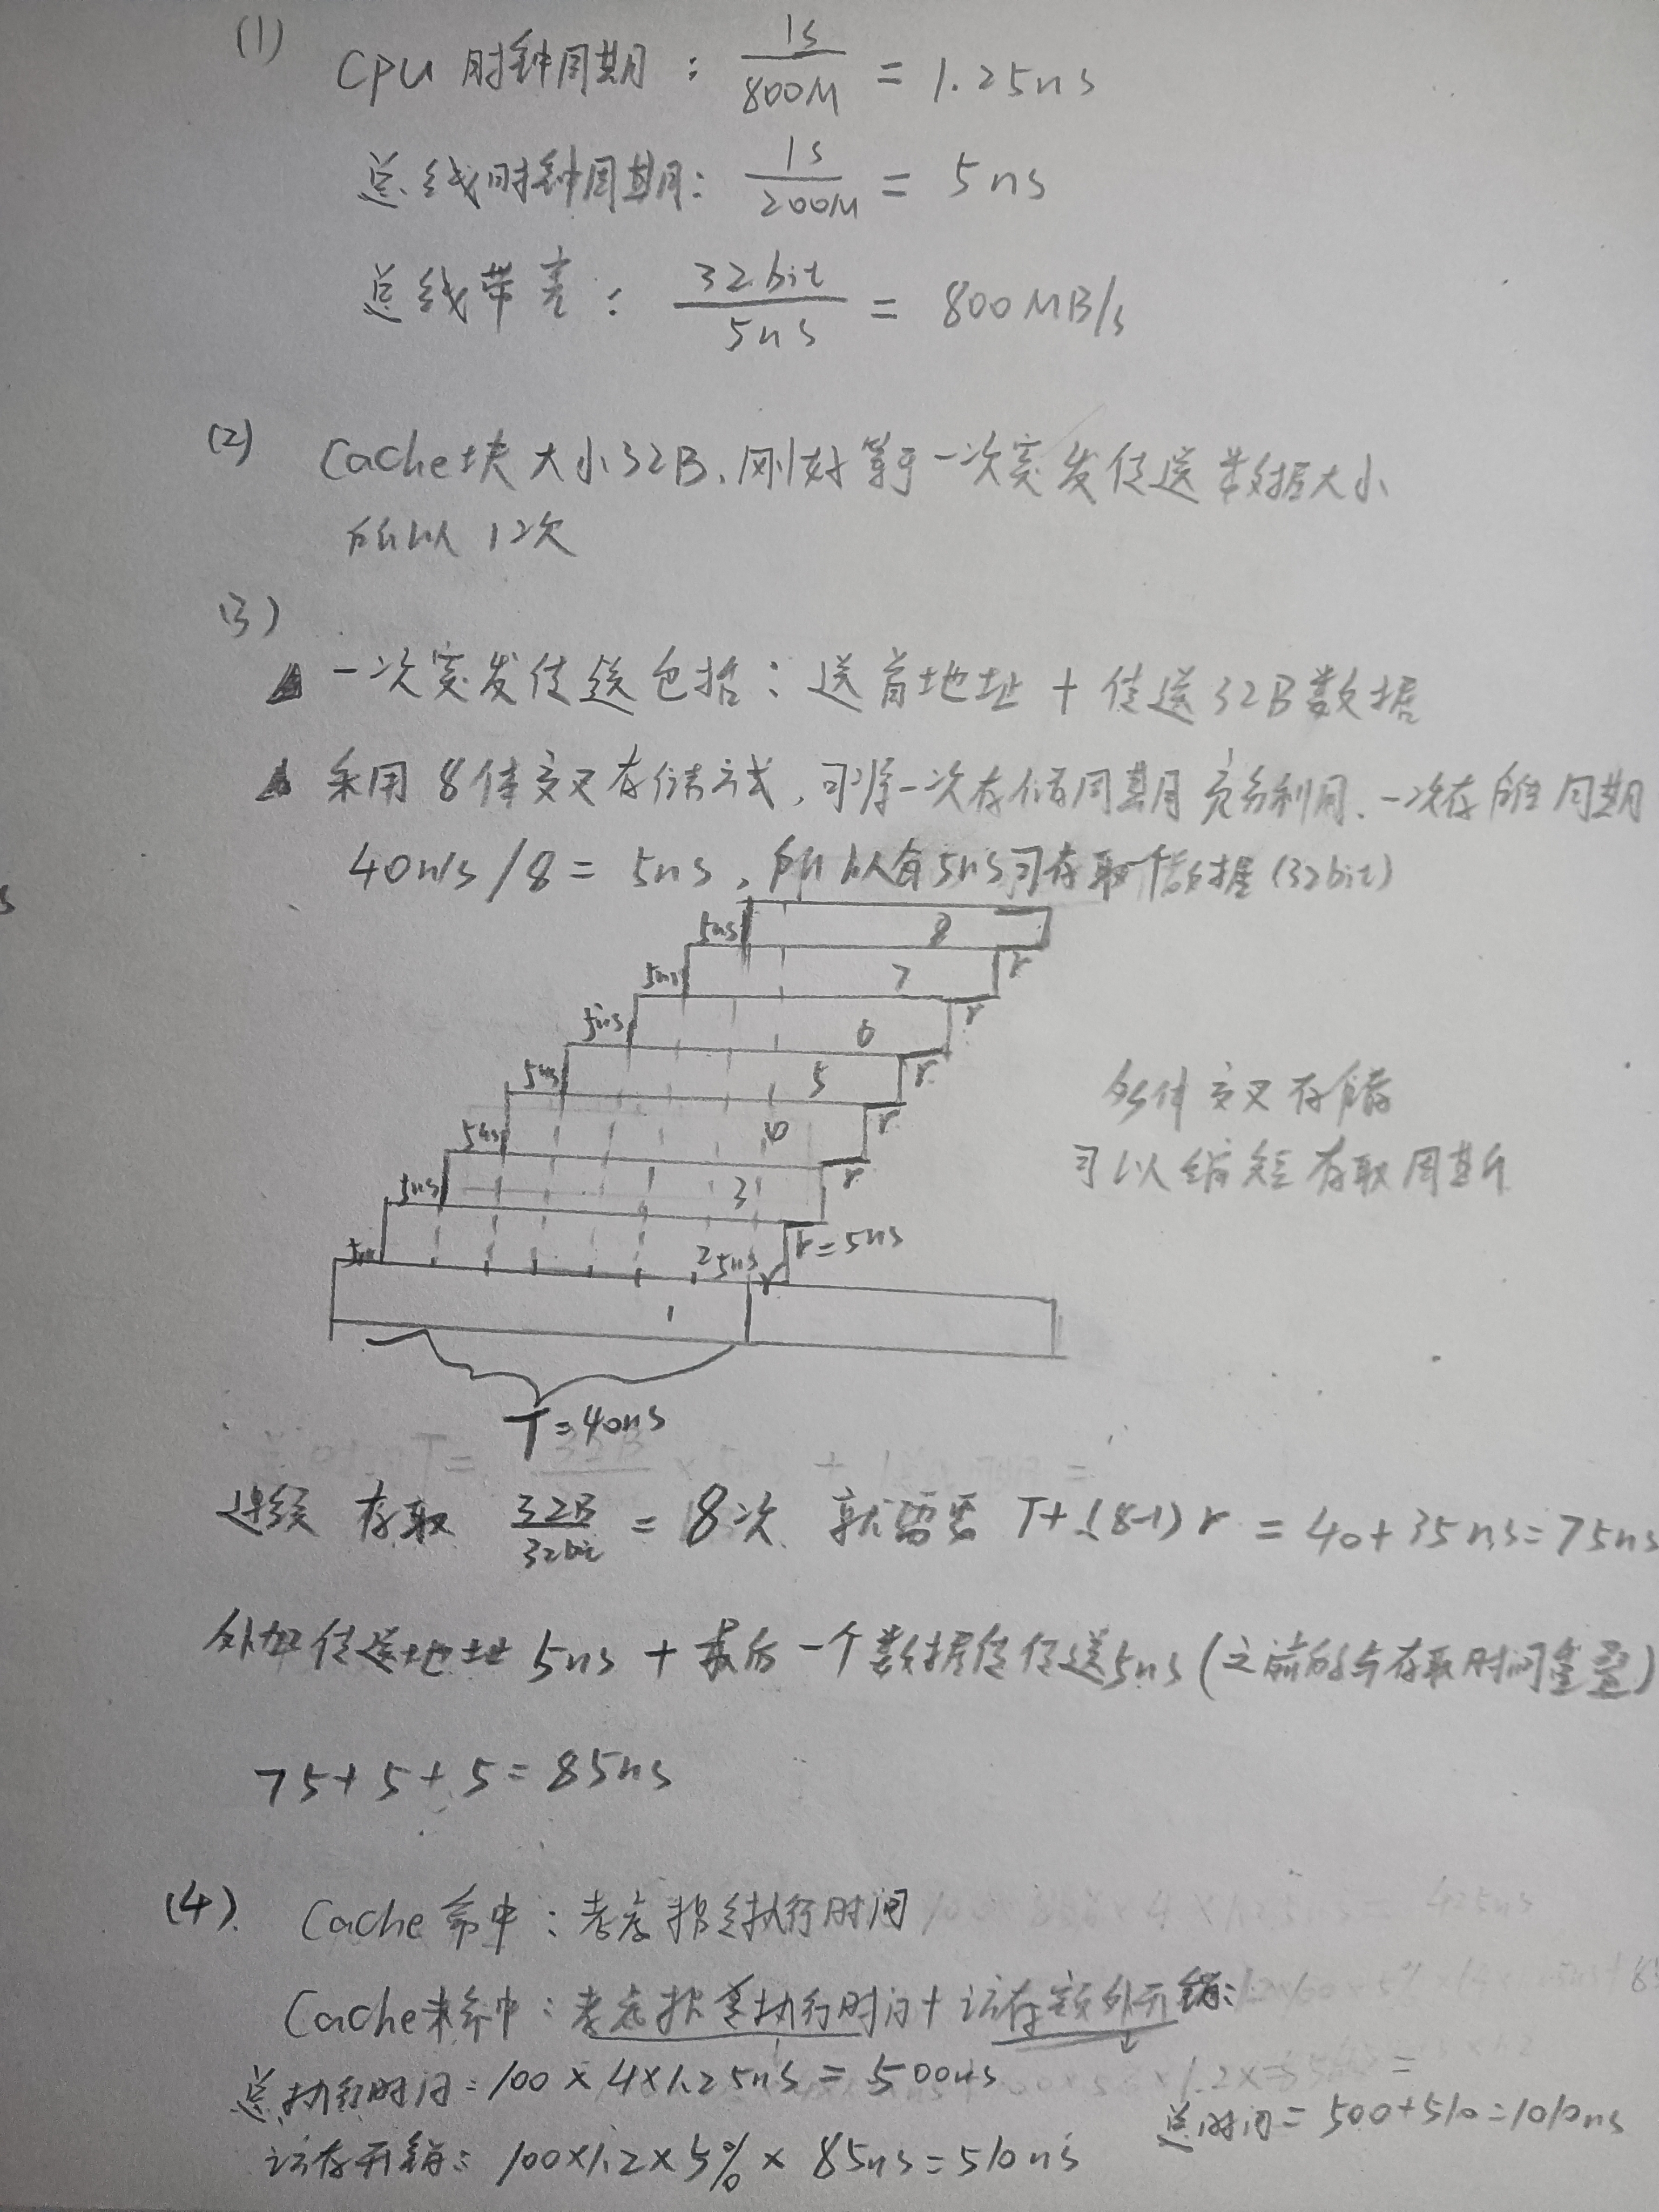 (1)
CPU 时钟周期： 1s/800M = 1.25ns
总线时钟周期： 1s/200M = 5ns
总线带宽： 32bit/5ns = 800MB/s
(2) Cache块大小32B，刚好等于一次突发传送数据大小
所以 12次
(3)
一次突发传送包括：送首地址 + 传送32B数据
采用 8体交叉存储方式，可将一次存储周期充分利用、一次存储周期
40ns/8 = 5ns，所以每5ns可存取一个数据(32bit)
5ns 8
5ns 7 r
5ns 6 r
5ns 5 r
5ns 4 r
5ns 3 r
5ns 2 5ns r r=5ns
1
T=40ns
多体交叉存储
可以缩短存取周期
连续 存取 32B/32bit = 8次 就需要 T+(8-1)r = 40+35ns=75ns
外加传送地址 5ns + 最后一个数据传送5ns (之前的与存取时间重叠)
75+5+5=85ns
(4). Cache 命中：考虑指令执行时间
Cache未命中：考虑指令执行时间+访存额外开销：
总执行时间=100×4×1.25ns=500ns
总时间=500+510=1010ns
访存开销：100×1.2×5%×85ns=510ns